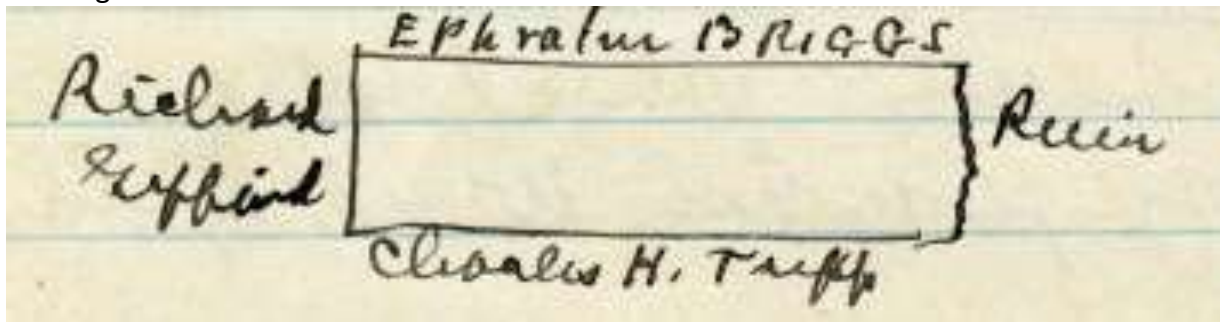 Ephraim BRIGGS
Richard
Gifford
River
Charles H. Tripp